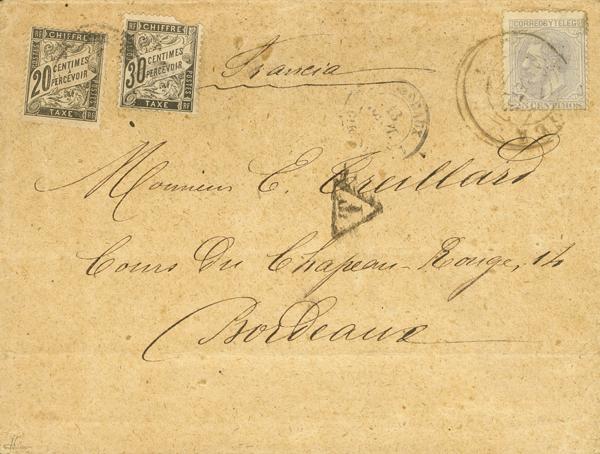 RF CHIFFRE
20 CENTIMES
À PERCEVOIR
POSTES
TAXE RF
RF CHIFFRE
30 CENTIMES
À PERCEVOIR
POSTES
TAXE RF
CORREOS Y TELEGS
25 CENTIMOS
Francia
T
Monsieur E. Treillard
Cours du Chapeau-Rouge, 14
Bordeaux